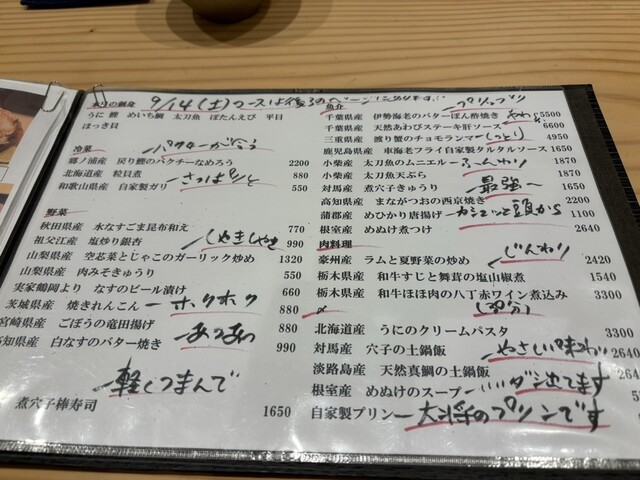 9/14(土)コースは後ろの
うに 鰹 めいち鯛 太刀魚 ぼたんえび 平目
ほっき貝
冷菜
郷ノ浦産 戻り鰹のパクチーなめろう 2200
北海道産 粒貝煮 880
和歌山県産 自家製ガリ さっぱりと 550
野菜
秋田県産 水なすごま昆布和え 770
祖父江産 塩炒り銀杏 しゃきしゃき 990
山梨県産 空芯菜とじゃこのガーリック炒め 1320
山梨県産 肉みそきゅうり 550
実家鶴岡より なすのビール漬け 660
茨城県産 焼きれんこん ホクホク 880
宮崎県産 ごぼうの竜田揚げ 880
高知県産 白なすのバター焼き あつあつ 990
軽くつまんで
煮穴子棒寿司 1650
魚介 プリップリ
千葉県産 伊勢海老のバターぽん酢焼き 5500
千葉県産 天然あわびステーキ肝ソース 6600
三重県産 渡り蟹のチョモランマ しっとり 4950
鹿児島県産 車海老フライ自家製タルタルソース 1650
小柴産 太刀魚のムニエル ふんわり 1870
小柴産 太刀魚天ぷら 1870
対馬産 煮穴子きゅうり 最強 1650
高知県産 まながつおの西京焼き 2200
蒲郡産 めひかり唐揚げ カシュッと頭から 1100
根室産 めぬけ煮つけ 2640
肉料理
豪州産 ラムと夏野菜の炒め じんわり 2420
栃木県産 和牛すじと舞茸の塩山椒煮 1540
栃木県産 和牛ほほ肉の八丁赤ワイン煮込み 3300
〆 (30分)
北海道産 うにのクリームパスタ 3300
対馬産 穴子の土鍋飯 やさしい味わい 2640
淡路島産 天然真鯛の土鍋飯 2640
根室産 めぬけのスープ いいダシ出てます
自家製プリン 大将のプリンです